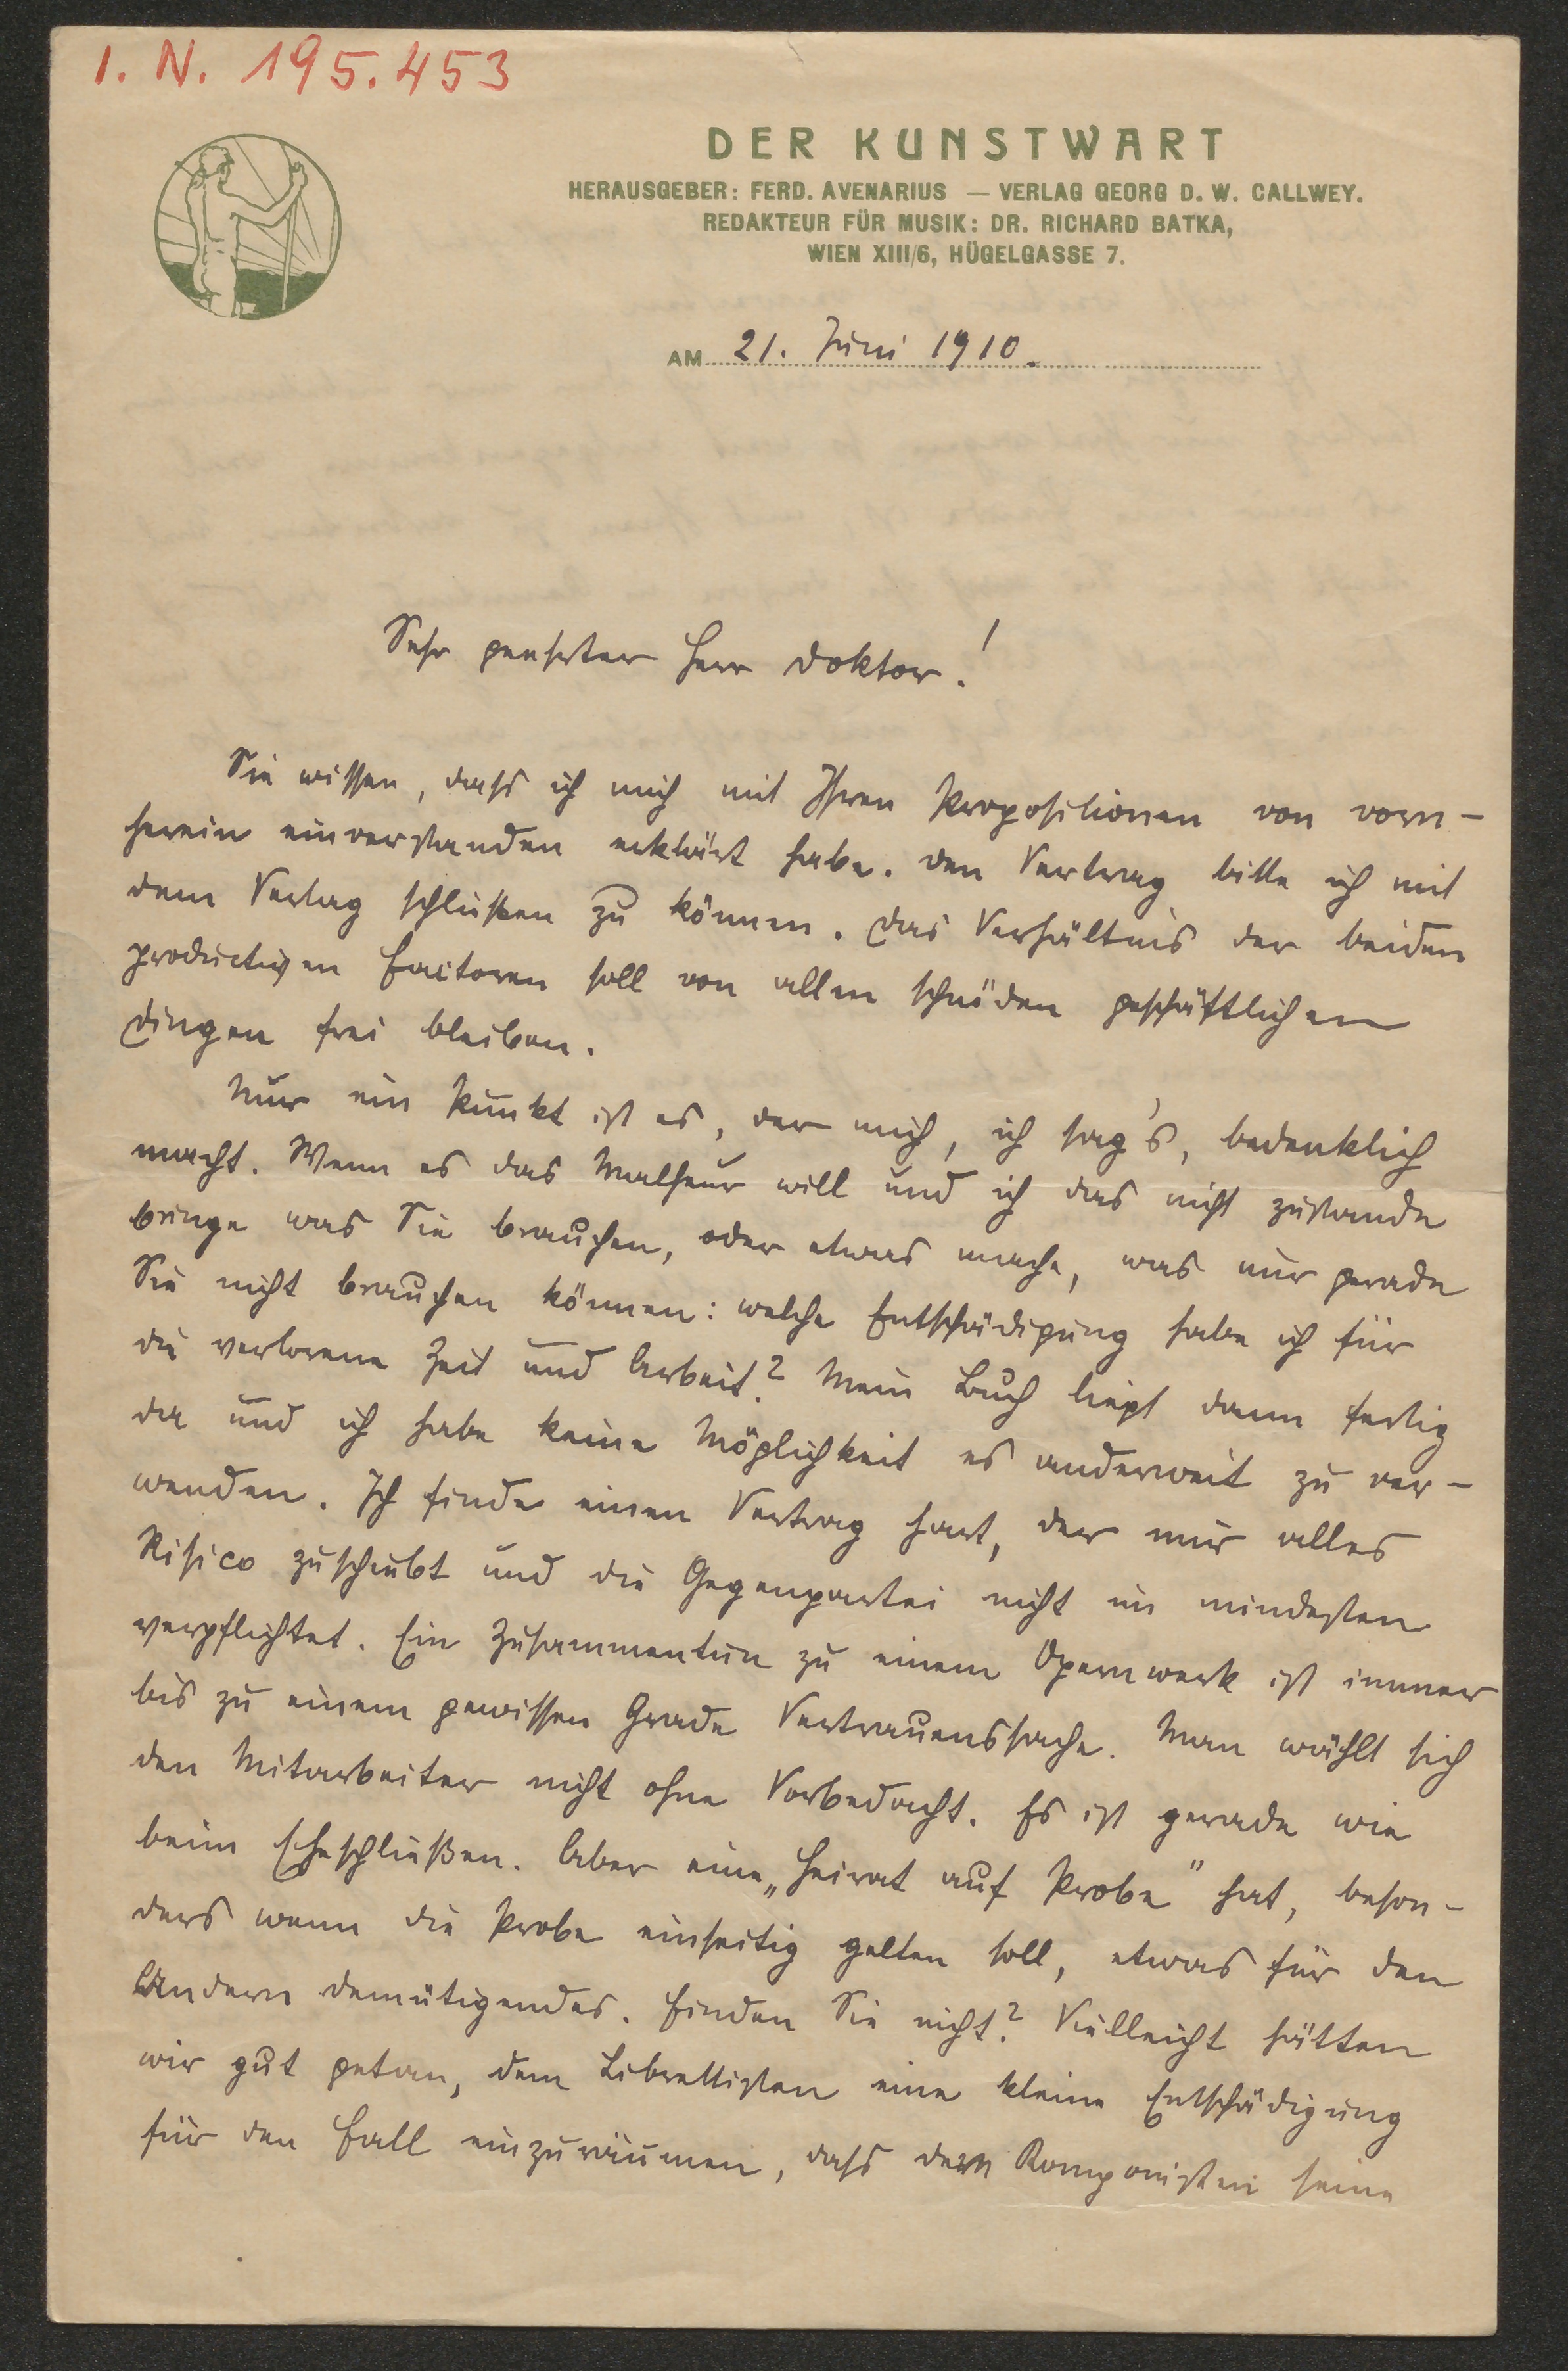 I. N. 195.453
DER KUNSTWART
HERAUSGEBER: FERD. AVENARIUS — VERLAG GEORG D. W. CALLWEY.
REDAKTEUR FÜR MUSIK: DR. RICHARD BATKA,
WIEN XIII/6, HÜGELGASSE 7.
AM 21. Juni 1910.
Sehr geehrter Herr Doktor!
Sie wissen, dass ich mich mit Ihren Propositionen von vorn-
herein einverstanden erklärt habe. Den Vertrag bitte ich mit
dem Verlag schließen zu können. Das Verhältnis der beiden
productiven Factoren soll von allen schnöden geschäftlichen
Dingen frei bleiben.
Nur ein Punkt ist es, der mich, ich sag's, bedenklich
macht. Wenn es das Malheur will und ich das nicht zustande
bringe was Sie brauchen, oder etwas mache, was nur gerade
Sie nicht brauchen können: welche Entschädigung habe ich für
die verlorene Zeit und Arbeit? Mein Buch liegt dann fertig
da und ich habe keine Möglichkeit es anderweit zu ver-
wenden. Ich finde einen Vertrag hart, der mir alles
Risico zuschiebt und die Gegenpartei nicht im mindesten
verpflichtet. Ein Zusammentun zu einem Opernwerk ist immer
bis zu einem gewissen Grade Vertrauenssache. Man wählt sich
den Mitarbeiter nicht ohne Vorbedacht. Es ist gerade wie
beim Eheschließen. Aber eine „Heirat auf Probe" hat, beson-
ders wenn die Probe einseitig gelten soll, etwas für den
Andern demütigendes. Finden Sie nicht? Vielleicht hätten
wir gut getan, dem Librettisten eine kleine Entschädigung
für den Fall einzuräumen, dass dem Komponisten seine